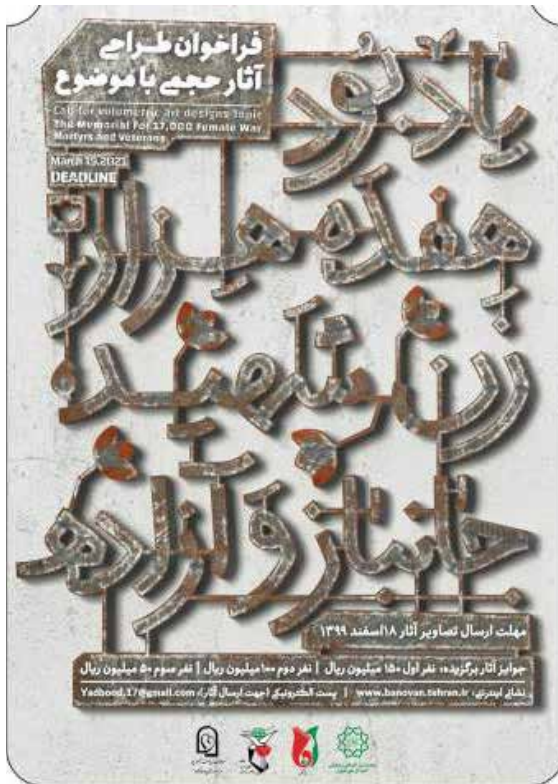 فراخوان طراحی
آثار حجمی با موضوع
Call for volumetric art designs Topic
The Memorial For 17,000 Female War
Martyrs and Veterans
March 19.2021
DEADLINE
یادبود
هفده هزار
زن شهید
جانباز و آزاده
مهلت ارسال تصاویر آثار ۱۸ اسفند ۱۳۹۹
جوایز آثار برگزیده: نفر اول ۱۵۰ میلیون ریال | نفر دوم ۱۰۰ میلیون ریال | نفر سوم ۵۰ میلیون ریال
نشانی اینترنتی: www.banovan.tehran.ir | پست الکترونیکی (جهت ارسال آثار): Yadbood.17@gmail.com